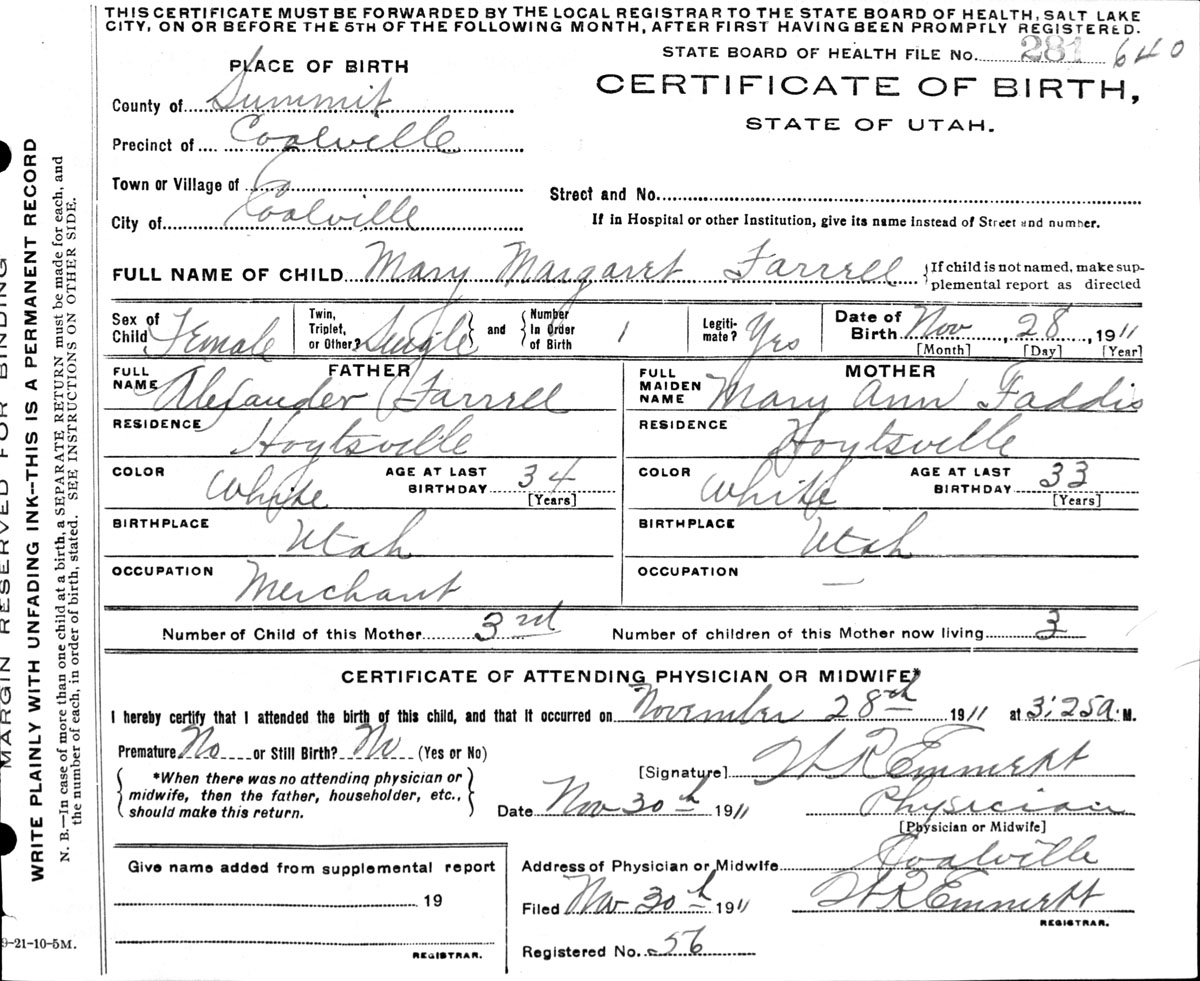 THIS CERTIFICATE MUST BE FORWARDED BY THE LOCAL REGISTRAR TO THE STATE BOARD OF HEALTH, SALT LAKE
CITY, ON OR BEFORE THE 5TH OF THE FOLLOWING MONTH, AFTER FIRST HAVING BEEN PROMPTLY REGISTERED.
STATE BOARD OF HEALTH FILE No. 281 640
PLACE OF BIRTH
CERTIFICATE OF BIRTH,
STATE OF UTAH.
County of Summit
Precinct of Coalville
Town or Village of
Street and No.
City of Coalville
If in Hospital or other Institution, give its name instead of Street and number.
FULL NAME OF CHILD Mary Margaret Farrell
If child is not named, make sup-
plemental report as directed
Sex of Child Female
Twin, Triplet, or Other? Single
and
Number In Order of Birth 1
Legiti-mate? Yes
Date of Birth Nov, 28, 1911
[Month] [Day] [Year]
FATHER
FULL NAME Alexander Farrell
MOTHER
FULL MAIDEN NAME Mary Ann Faddis
RESIDENCE Hoytsville
RESIDENCE Hoytsville
COLOR White AGE AT LAST BIRTHDAY 34 [Years]
COLOR White AGE AT LAST BIRTHDAY 33 [Years]
BIRTHPLACE Utah
BIRTHPLACE Utah
OCCUPATION Merchant
OCCUPATION —
Number of Child of this Mother 3rd
Number of children of this Mother now living 3
CERTIFICATE OF ATTENDING PHYSICIAN OR MIDWIFE*
I hereby certify that I attended the birth of this child, and that it occurred on November 28th 1911 at 3:25 a. M.
Premature No or Still Birth? No (Yes or No)
*When there was no attending physician or
midwife, then the father, householder, etc.,
should make this return.
[Signature] W R Emmett
Date Nov 30th 1911
Physician
[Physician or Midwife]
Give name added from supplemental report
19
REGISTRAR.
Address of Physician or Midwife Coalville
Filed Nov 30th 1911
W R Emmett
REGISTRAR.
Registered No. 56
MARGIN RESERVED FOR BINDING
WRITE PLAINLY WITH UNFADING INK--THIS IS A PERMANENT RECORD
N. B.—In case of more than one child at a birth, a SEPARATE RETURN must be made for each, and
the number of each, in order of birth, stated. SEE INSTRUCTIONS ON OTHER SIDE.
9-21-10-5M.